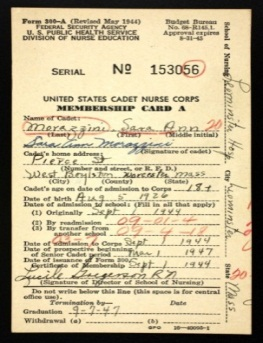 Form 300-A (Revised May 1944)
FEDERAL SECURITY AGENCY
U. S. PUBLIC HEALTH SERVICE
DIVISION OF NURSE EDUCATION
Budget Bureau
No. 68-R145.1.
Approval expires
8-31-45
SERIAL No 153056
UNITED STATES CADET NURSE CORPS
MEMBERSHIP CARD A
Name of Cadet:
Morazzini Sara Ann 20
(Last) (First) (Middle initial)
Sara Ann Morazzini
Cadet's home address: (Signature of cadet)
Pierce St
(Number and street, or R. F. D.)
West Boylston Worcester Mass
(City) (County) (State)
Cadet's age on date of admission to Corps 18+
Date of birth Aug 5 1926
Date of admission of school: (Fill in all that apply)
(1) Originally Sept 1944
(2) By readmission 09-01-4
(3) By transfer from another
Date of admission to Corps Sept 1 1944
Date of prospective beginning of Senior Cadet period Mar 1 1947
Date of issuance of Form 300
Certificate of Membership Sept 1 1944
R.N.
(Signature of Director of School of Nursing)
Do not write below this line (this space is for central office use).
Termination by Date
Graduation 9-7-47
Withdrawal (a) (b)
GPO
School of Nursing
City
State
Mass.